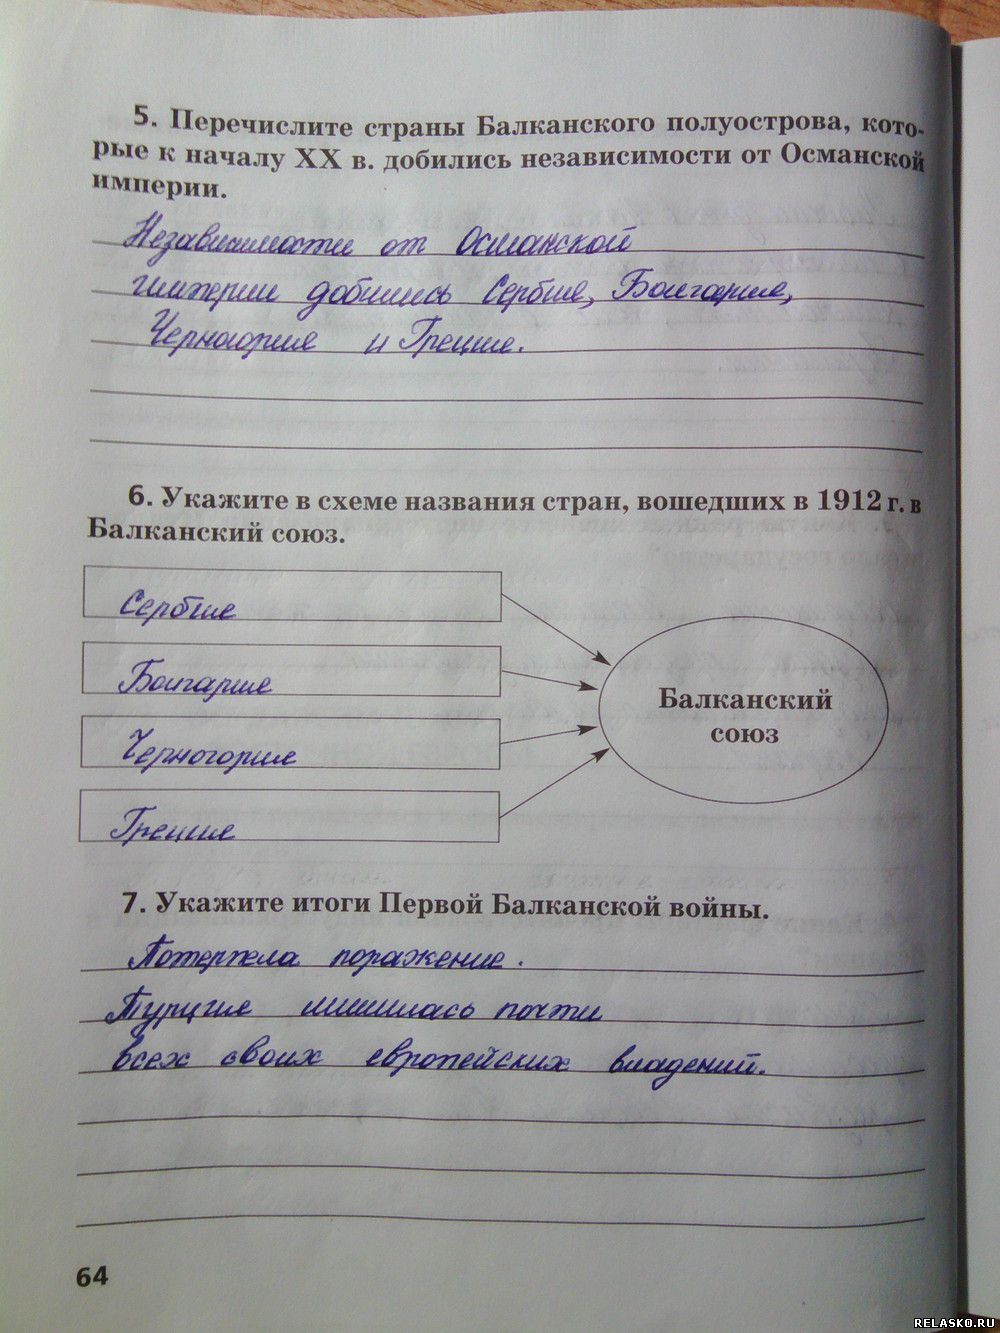 5. Перечислите страны Балканского полуострова, кото-
рые к началу XX в. добились независимости от Османской
империи.
Независимости от Османской
империи добились Сербия, Болгария,
Черногория и Греция.
6. Укажите в схеме названия стран, вошедших в 1912 г. в
Балканский союз.
Сербия
Болгария
Черногория
Греция
Балканский
союз
7. Укажите итоги Первой Балканской войны.
Потерпела поражение.
Турция лишилась почти
всех своих европейских владений.
64
RELASKO.RU